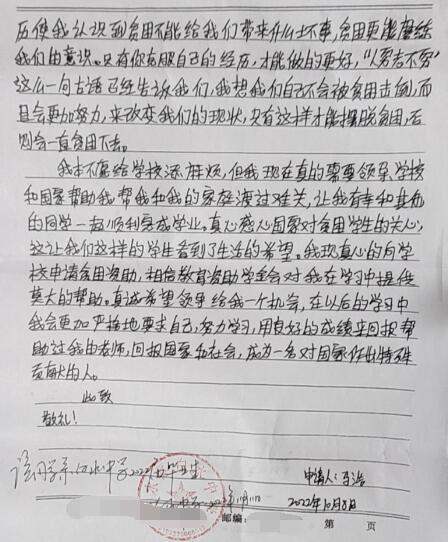 历使我认识到贫困不能给我们带来什么坏事，贫困更能磨练
我们的意识。只有你克服自己的经历，才能做的更好，“人穷志不穷”
这么一句古语已经告诉我们，我想我们自己不会被贫困击倒，而
且会更加努力，来改变我们的现状，只有这样才能摆脱贫困，否
则会一直贫困下去。
我本不愿给学校添麻烦，但我现在真的需要领导、学校
和国家帮助我，帮我和我的家庭渡过难关，让我有幸和其他
的同学一起顺利完成学业。真心感心国家对贫困学生的关心，
这让我们这样的学生看到了生活的希望。我现真心的向学
校申请贫困资助，相信教育资助学金会对我在学习中提供
莫大的帮助。真诚希望领导给我一个机会，在以后的学习中
我会更加严格地要求自己，努力学习，用良好的成绩来回报帮
助过我的老师，回报国家和社会，成为一名对国家作出特殊
贡献的人。
此致
敬礼！
该同学系 水中学2022 毕业生
申请人：
2022年10月8日
邮编： 第 页